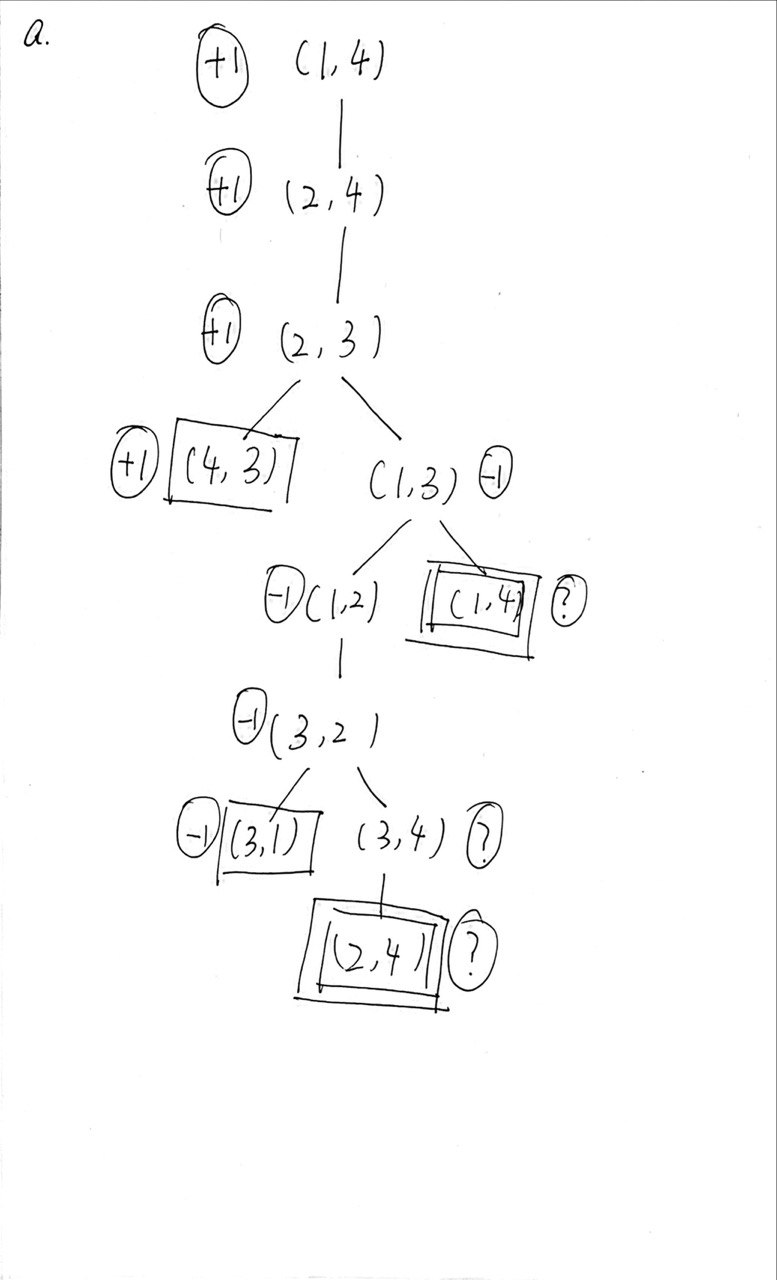 a.
+1 (1,4)
+1 (2,4)
+1 (2,3)
+1 (4,3) (1,3) -1
-1 (1,2) (1,4) ?
-1 (3,2)
-1 (3,1) (3,4) ?
(2,4) ?